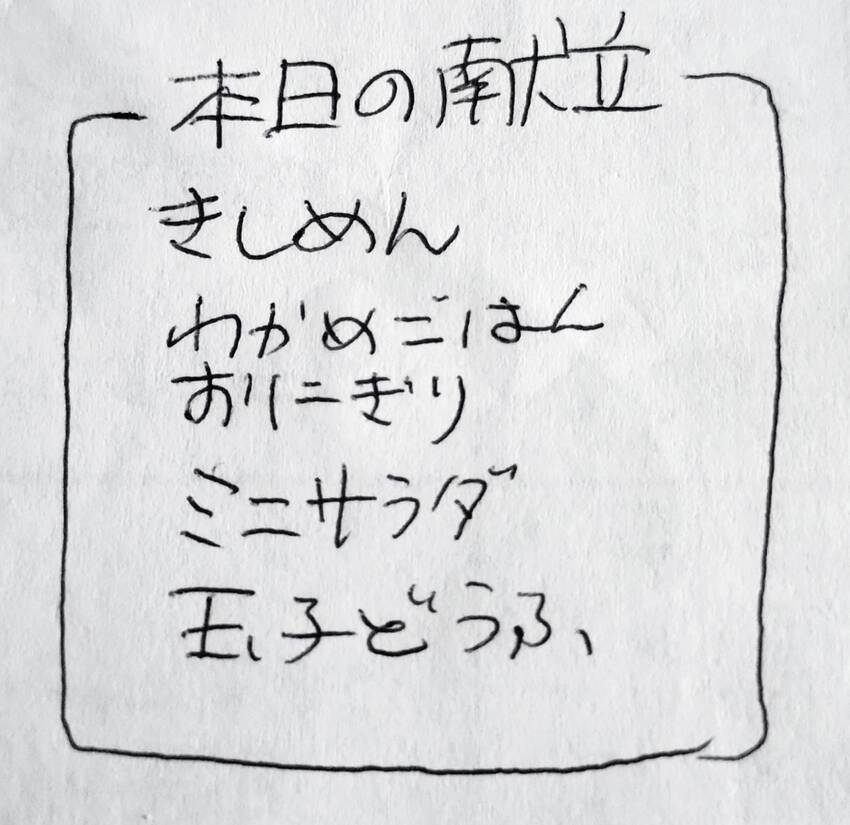 本日の献立
きしめん
わかめごはん
おりにぎり
ミニサラダ
玉子どうふ